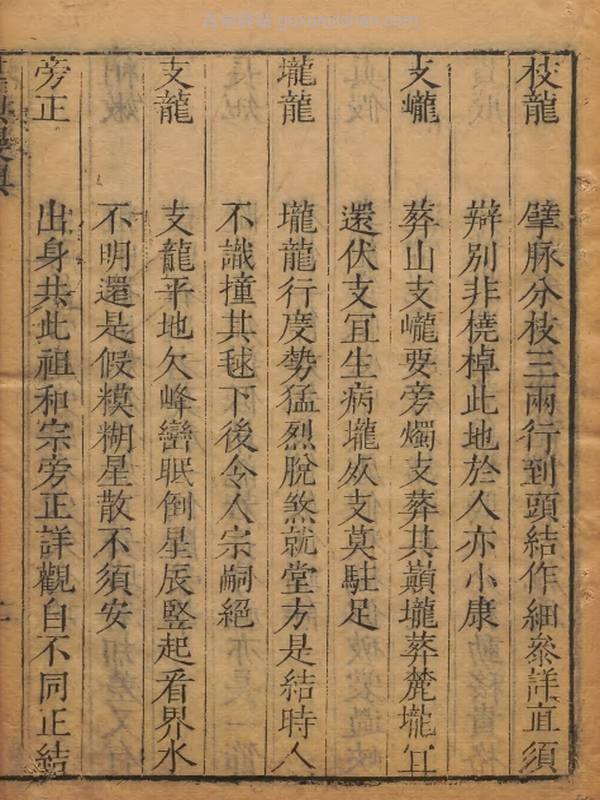 枝龍 擘脉分枝三兩行到頭結作細叅詳直須
辯別非橈棹此地於人亦小康
支巃 葬山支巃要旁燭支葬其巔壠葬麓壠宜
還伏支宜生病壠必支莫駐足
壠龍 壠龍行度勢猛烈脫煞就堂方是結時人
不識撞其毬下後令人宗嗣絕
支龍 支龍平地欠峰巒眠倒星辰竪起看界水
不明還是假糢糊星散不須安
旁正 出身共此祖和宗旁正詳觀自不同正結